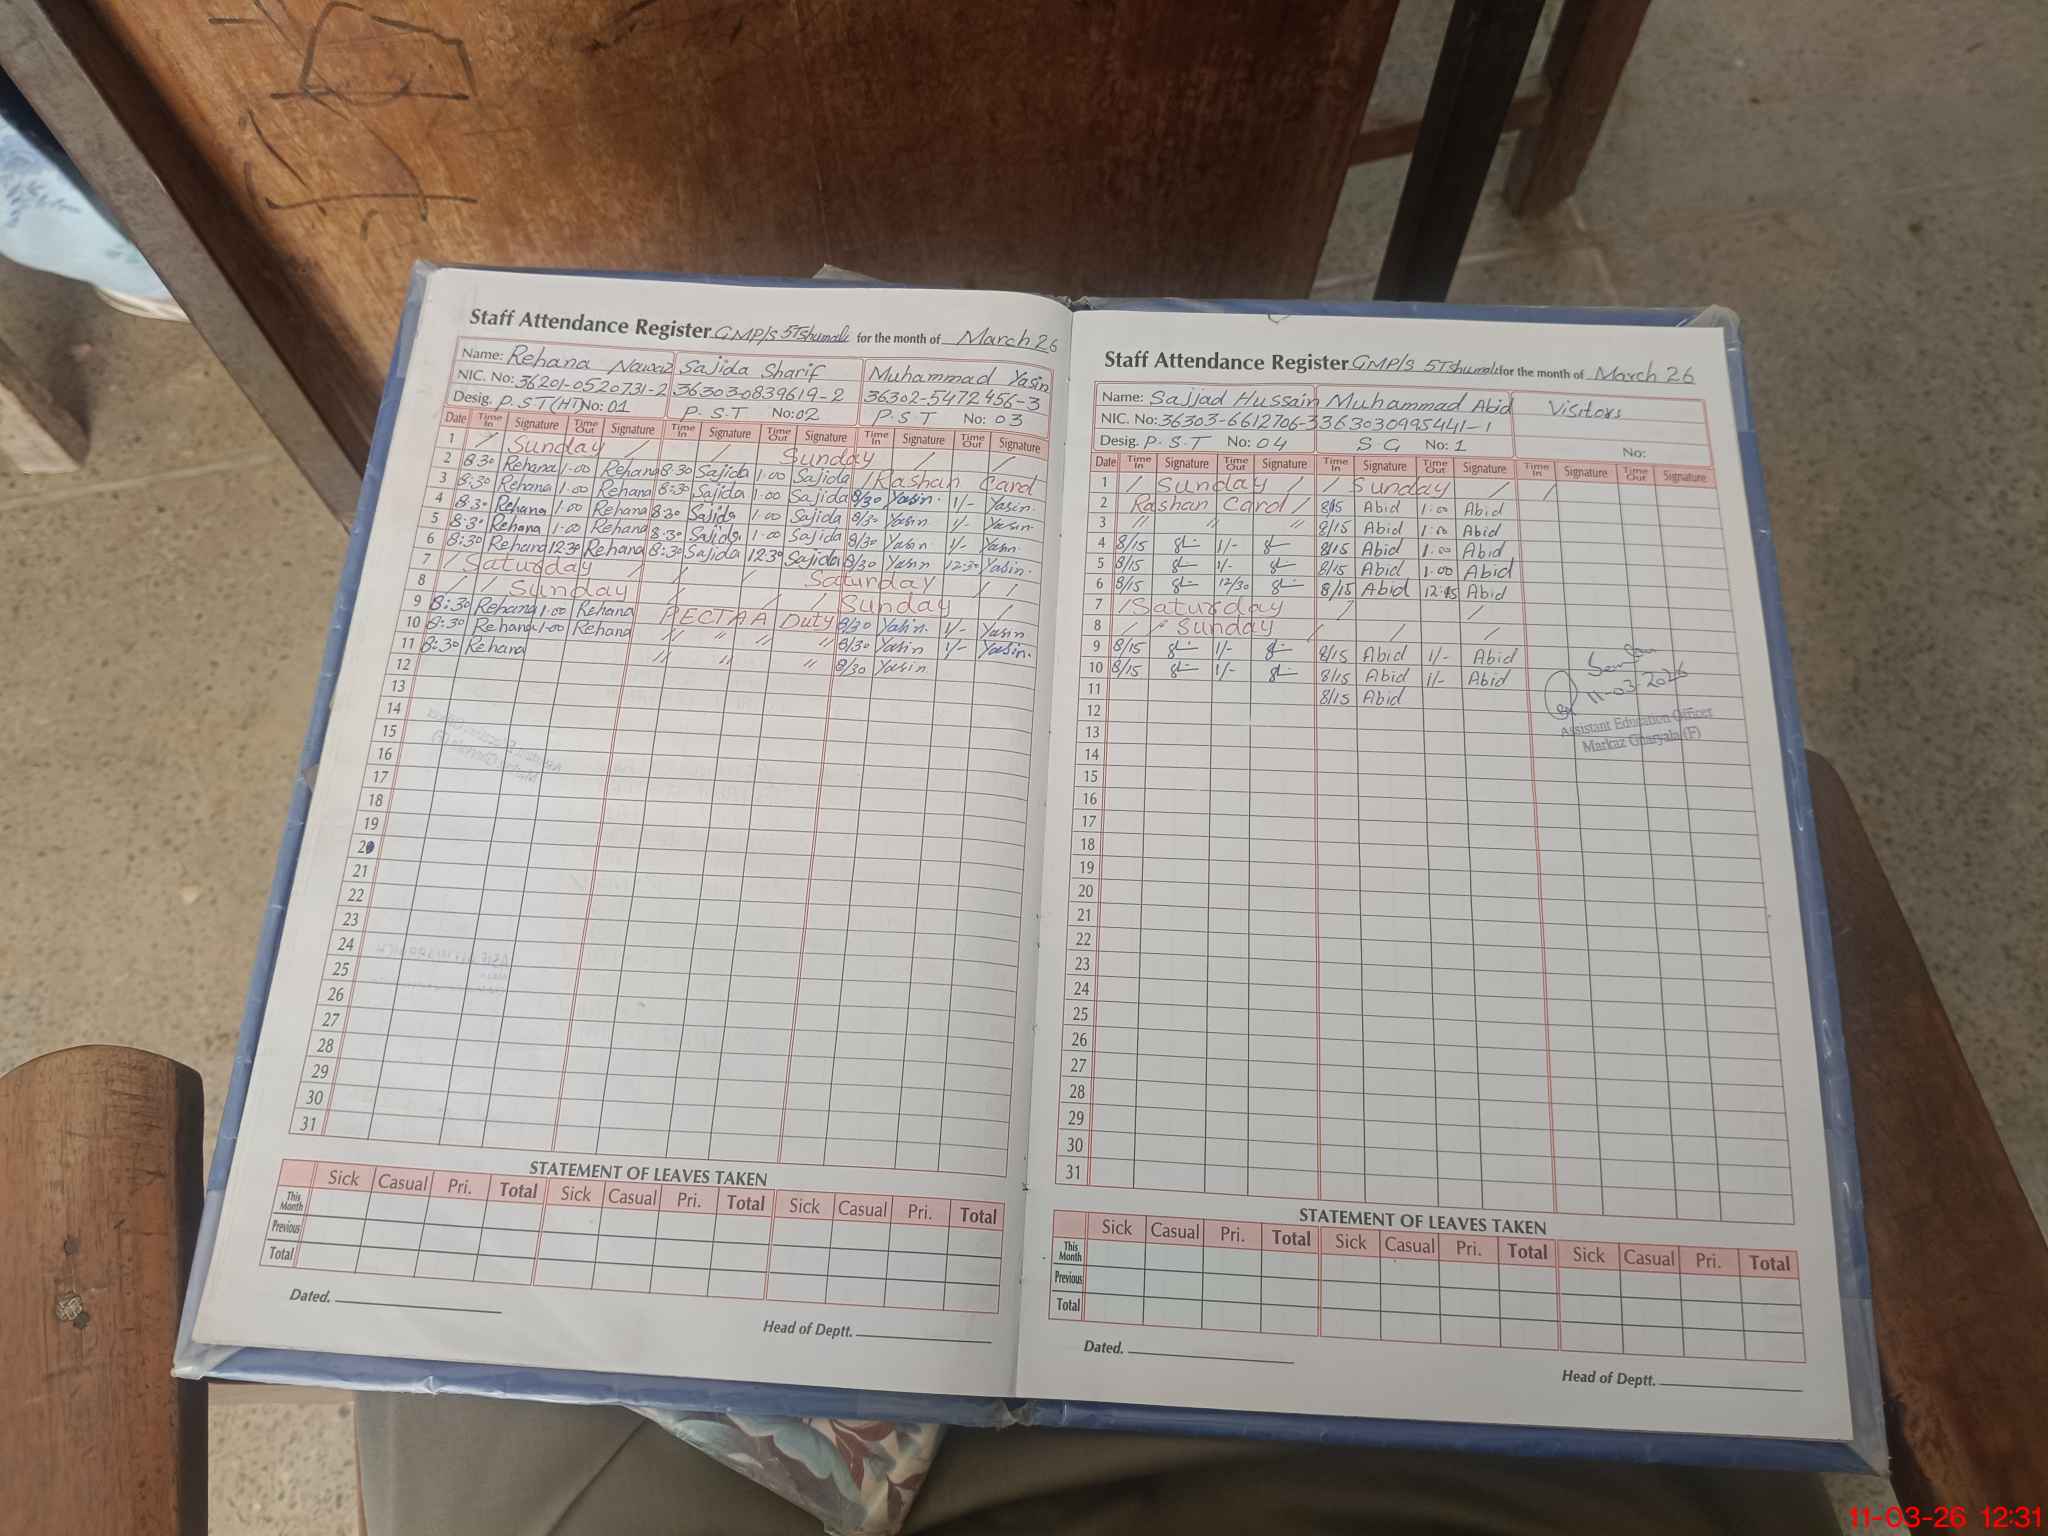 Staff Attendance Register GMP/S 5T shumali for the month of March 26
Name: Rehana Nawaz Sajida Sharif Muhammad Yasin
NIC. No: 36201-0520731-2 36303-0839619-2 36302-5472456-3
Desig. P.S.T(HT) No: 01 P.S.T No: 02 P.S.T No: 03
Date Time In Signature Time Out Signature Time In Signature Time Out Signature Time In Signature Time Out Signature
1 / Sunday / / Sunday / /
2 8:30 Rehana 1.00 Rehana 8:30 Sajida 1.00 Sajida / Rashan Card
3 8:30 Rehana 1.00 Rehana 8:30 Sajida 1.00 Sajida 8/30 Yasin 1/- Yasin
4 8:30 Rehana 1.00 Rehana 8:30 Sajida 1.00 Sajida 8/30 Yasin 1/- Yasin
5 8:30 Rehana 1.00 Rehana 8:30 Sajida 1.00 Sajida 8/30 Yasin 1/- Yasin
6 8:30 Rehana 12:30 Rehana 8:30 Sajida 12:30 Sajida 8/30 Yasin 12:30 Yasin
7 / Saturday / / / Saturday / /
8 / / Sunday / / / Sunday /
9 8:30 Rehana 1.00 Rehana PECTAA Duty 8/30 Yasin 1/- Yasin
10 8:30 Rehana 1.00 Rehana " " " " 8/30 Yasin 1/- Yasin
11 8:30 Rehana " " " 8/30 Yasin
12
13
14
15
16
17
18
19
20
21
22
23
24
25
26
27
28
29
30
31
STATEMENT OF LEAVES TAKEN
Sick Casual Pri. Total Sick Casual Pri. Total Sick Casual Pri. Total
This Month
Previous
Total
Dated.
Head of Deptt.
Staff Attendance Register GMP/S 5T shumali for the month of March 26
Name: Sajjad Hussain Muhammad Abid Visitors
NIC. No: 36303-6612706-3 363030995441-1
Desig. P.S.T No: 04 S G No: 1 No:
Date Time In Signature Time Out Signature Time In Signature Time Out Signature Time In Signature Time Out Signature
1 / Sunday / / Sunday / /
2 Rashan Card / 8/15 Abid 1:00 Abid
3 " " " 8/15 Abid 1:00 Abid
4 8/15 1/- 8/15 Abid 1.00 Abid
5 8/15 1/- 8/15 Abid 1.00 Abid
6 8/15 12/30 8/15 Abid 12:15 Abid
7 / Saturday / /
8 / / Sunday / / /
9 8/15 1/- 8/15 Abid 1/- Abid
10 8/15 1/- 8/15 Abid 1/- Abid
11 8/15 Abid
12
13
14
15
16
17
18
19
20
21
22
23
24
25
26
27
28
29
30
31
11-03-2026
Assistant Education Officer
Markaz Gharyala (F)
STATEMENT OF LEAVES TAKEN
Sick Casual Pri. Total Sick Casual Pri. Total Sick Casual Pri. Total
This Month
Previous
Total
Dated.
Head of Deptt.
11-03-26 12:31